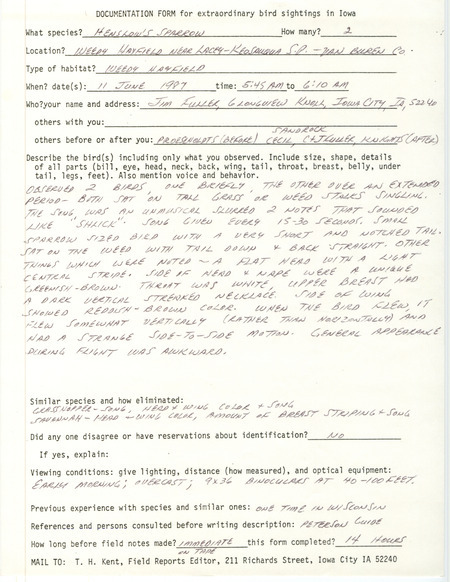 DOCUMENTATION FORM for extraordinary bird sightings in Iowa
What species? HENSLOW'S SPARROW How many? 2
Location? WEEDY HAYFIELD NEAR LACEY-KEOSAUQUA S.P. - VAN BUREN CO.
Type of habitat? WEEDY HAYFIELD
When? date(s): 11 JUNE 1987 time: 5:45 AM to 6:10 AM
Who?your name and address: JIM FULLER 6 LONGVIEW KNOLL, IOWA CITY, IA, 52240
others with you:
SANDROCK
others before or after you: PROESCHOLDTS (BEFORE) CECIL, C+J FULLER, KNIGHTS (AFTER)
Describe the bird(s) including only what you observed. Include size, shape, details
of all parts (bill, eye, head, neck, back, wing, tail, throat, breast, belly, under
tail, legs, feet). Also mention voice and behavior.
OBSERVED 2 BIRDS, ONE BRIEFLY, THE OTHER OVER AN EXTENDED
PERIOD - BOTH SAT ON TALL GRASS OR WEED STALKS SINGING.
THE SONG WAS AN UNMUSICAL SLURRED 2 NOTES THAT SOUNDED
LIKE "SHLICK". SONG GIVEN EVERY 15-30 SECONDS. SMALL
SPARROW SIZED BIRD WITH A VERY SHORT AND NOTCHED TAIL.
SAT ON THE WEED WITH TAIL DOWN & BACK STRAIGHT. OTHER
THINGS WHICH WERE NOTED - A FLAT HEAD WITH A LIGHT
CENTRAL STRIPE. SIDE OF HEAD & NAPE WERE A UNIQUE
GREENISH-BROWN. THROAT WAS WHITE, UPPER BREAST HAD
A DARK VERTICAL STREAKED NECKLACE. SIDE OF WING
SHOWED REDDISH-BROWN COLOR. WHEN THE BIRD FLEW, IT
FLEW SOMEWHAT VERTICALLY (RATHER THAN HORIZONTALLY) AND
HAD A STRANGE SIDE-TO-SIDE MOTION. GENERAL APPEARANCE
DURING FLIGHT WAS AWKWARD.
Similar species and how eliminated:
GRASSHOPPER - SONG, HEAD & WING COLOR & SONG
SAVANNAH - HEAD & WING COLOR, AMOUNT OF BREAST STRIPING & SONG
Did any one disagree or have reservations about identification? NO
If yes, explain:
Viewing conditions: give lighting, distance (how measured), and optical equipment:
EARLY MORNING; OVERCAST; 9X36 BINOCULARS AT 40-100 FEET.
Previous experience with species and similar ones: ONE TIME IN WISCONSIN
References and persons consulted before writing description: PETERSON GUIDE
How long before field notes made? IMMEDIATE this form completed? 14 HOURS
ON TAPE
MAIL TO: T. H. Kent, Field Reports Editor, 211 Richards Street, Iowa City IA 52240